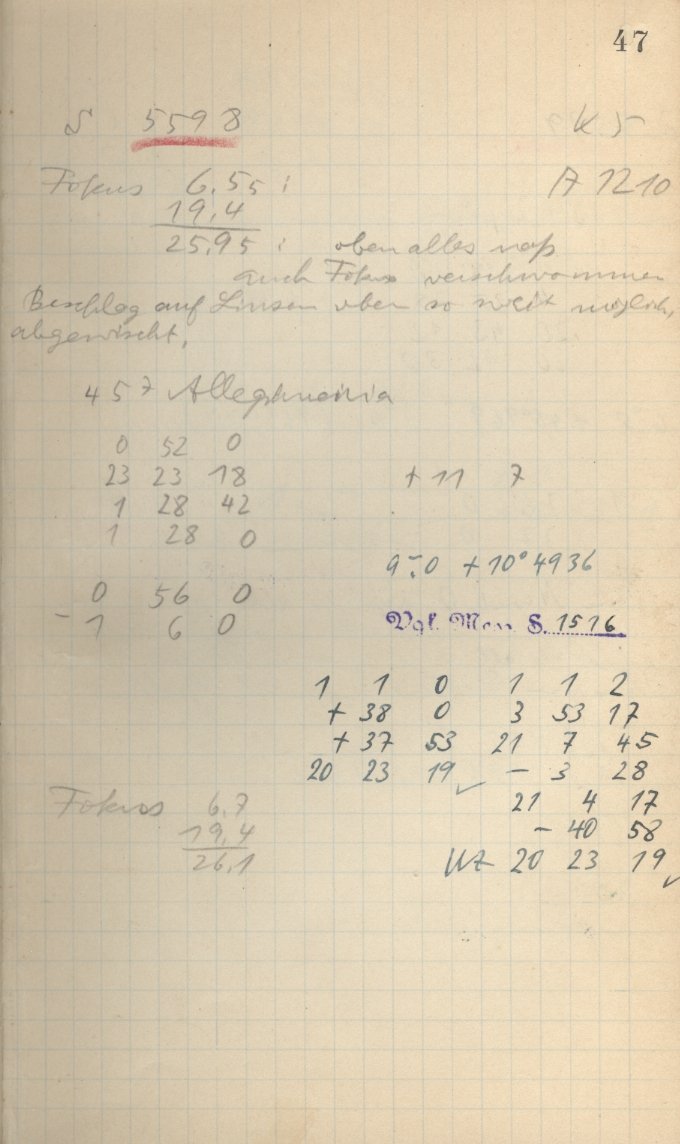 47
S 5598 K 5
Fokus 6,55 : A 1210
19,4
25,95 : oben alles naß
auch Fokus verschwommen
Beschlag auf Linsen oben so weit möglich,
abgewischt.
457 Alleghenia
0 52 0
23 23 18 + 11 7
1 28 42
1 28 0
9,0 + 10° 4936
0 56 0
- 1 6 0 Vgl. S. 1516
1 1 0 1 1 2
+ 38 0 3 53 17
+ 37 53 21 7 45
20 23 19 ✓ - 3 28
Fokus 6,7 21 4 17
19,4 - 40 58
26,1 20 23 19 ✓